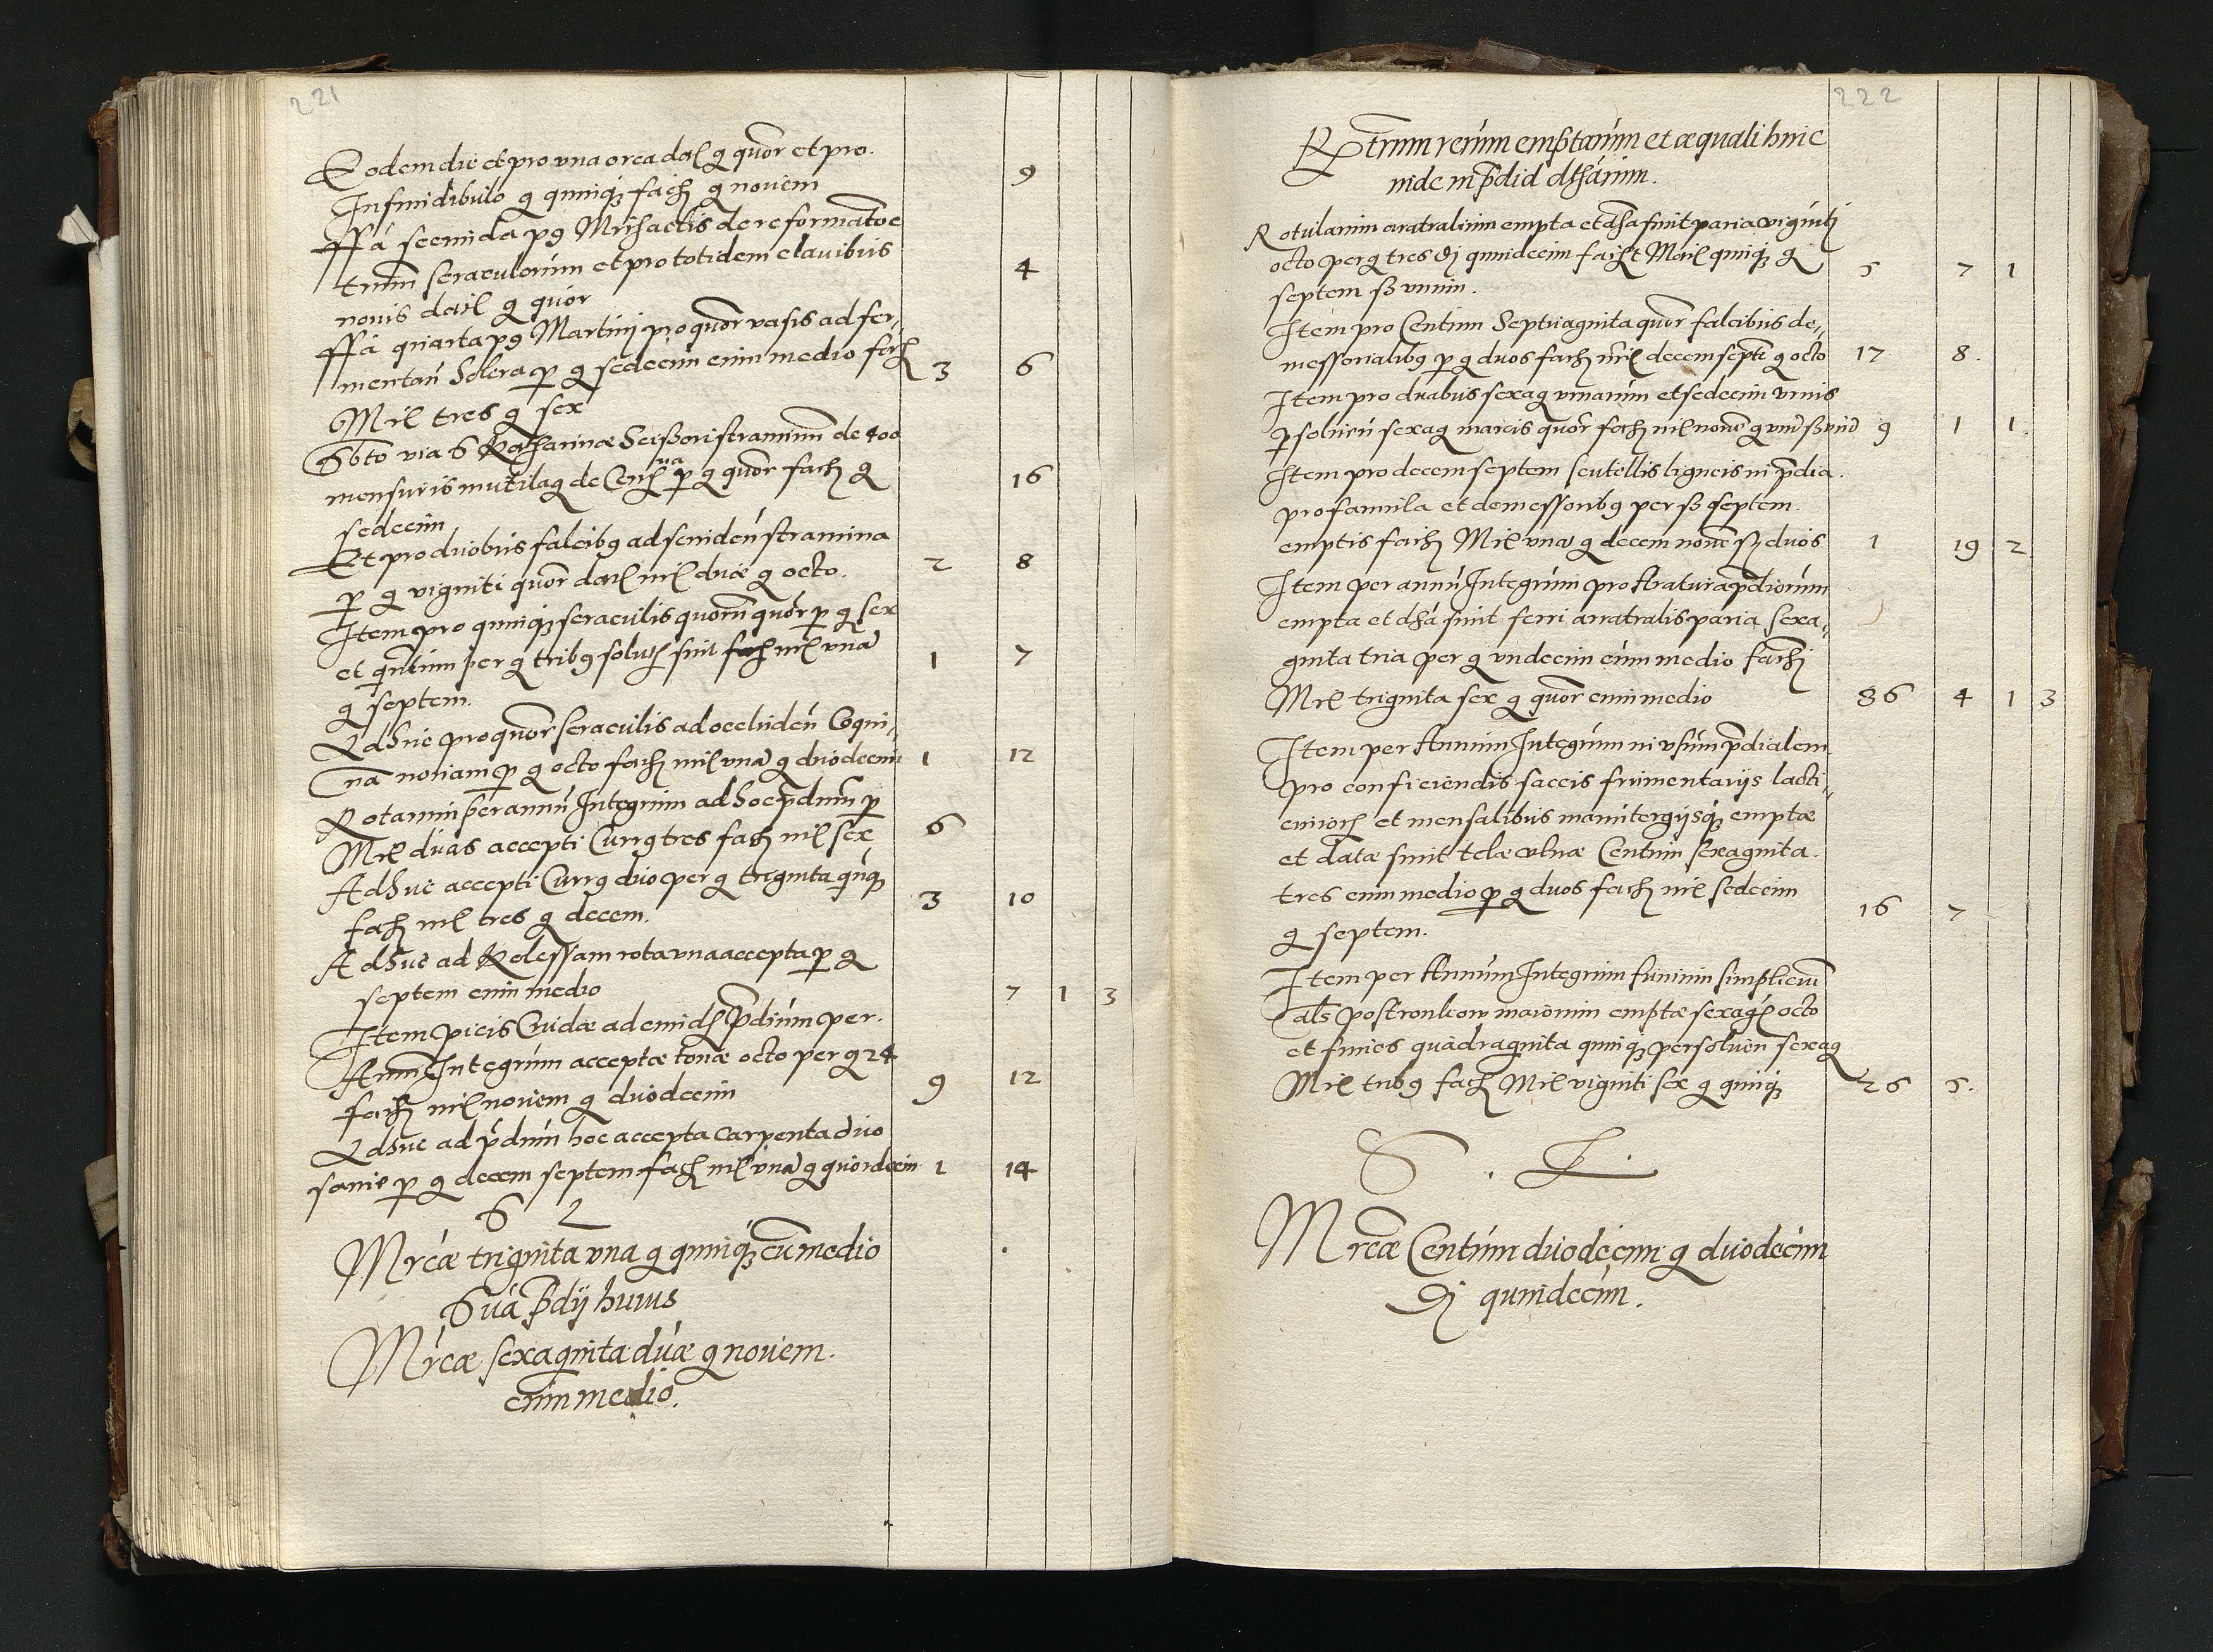 221
Eodem die et pro una orca dat g quor et pro
Infundibulo g quinq fach g novem 9
Ffa secunda p9 Michaelis de reformatoe
trium seraculorum et pro totidem clavibus
novis dat g quor 4
Ffa quarta p9 Martini pro quor vasis ad fer,,
mentan Solera p g sedecim cum medio fach
Mrl tres g sex 3 6
Sbto via S Katharinae Scissori straminum de 400
mensuris mutilaq de Cen p g quor fach g
sedecim 16
Et pro duobus falcib9 ad scinden stramina
p g viginti quor dat mrl duae g octo. 2 8
Item pro quinq seraculis quoru quor p g sex
et quintum per g trib9 solut sint mrl una
g septem. 1 7
Adhuc pro quor seraculis ad occluden Coqui,,
na noviam p g octo fach mrl una g duodecim 1 12
Rotarum per annu Integrum ad hoc pdium p
Mrl duas accepti Curr9 tres fach mrl sex 6
Adhuc accepti Curr9 duo per g triginta quinq
fach mrl tres g decem. 3 10
Adhuc ad Kolessam rota una accepta p g
septem cum medio 7 1 3
Item picis Crudae ad emid pdium per
Annu Integrum acceptae tonae octo per g 24
fach mrl novem g duodecim 9 12
Adhuc ad pdium hoc accepta carpenta duo
sanie p g decem septem fach mrl una g quordecim 1 14
S L
Mrcae triginta una g quinq cum medio
Sua pdij huius
Mrcae sexaginta duae g novem
cum medio.
222
Rtrum rerum emptarum et aequali huic
inde in pdid dtharum.
Rotularum aratralium empta et dtha sunt paria viginti
octo per g tres d quindecim fach Mrl quinq g
septem ß unum. 5 7 1
Item pro Centum Septuaginta quor falcibus de,,
messorialib9 p g duos fach mrl decem septe g octo 17 8.
Item pro duabus sexag urnarum et sedecim urnis
p solven sexag marcis quor fach mrl nove g unu ß unu 9 1 1
Item pro decem septem scutellis ligneis in pdia
pro familia et demessorib9 per ß septem
emptis fach Mrl una g decem nove ß duos 1 19 2
Item per annu Integrum pro Aratura pdiorum
empta et dtha sunt ferri arratralis paria sexa,,
ginta tria per g undecim cum medio fach
Mrl triginta sex g quor cum medio 36 4 1 3
Item per Annum Integrum in usum pdialem
pro conficiendis saccis frumentarijs lacti,,
et mensalibus manutergijsq emptae
et datae sunt telae ulnae Centum sexaginta
tres cum medio p g duos fach mrl sedecim
g septem. 16 7
Item per Annum Integrum funium simplicium
als postronkow maiorum emptae sexag octo
et funes quadraginta quinq persolven sexag
Mrl trib9 fach Mrl viginti sex g quinq 26 5.
S. L.
Mrcae Centum duodecim g duodecim
d quindecim.